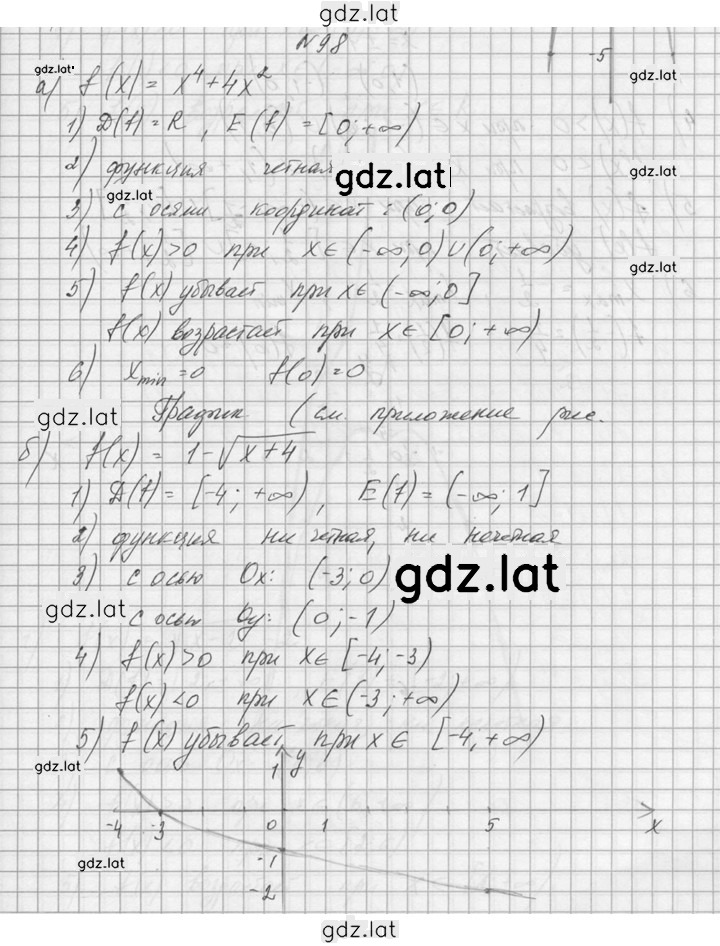 gdz.lat
N98
-5
gdz.lat
gdz.lat
а) f(x) = x⁴+4x²
1) D(f)=R, E(f)=[0;+∞)
2) функция четная
gdz.lat
gdz.lat
3) с осями координат: (0;0)
4) f(x)>0 при x∈(-∞;0)∪(0;+∞)
gdz.lat
5) f(x) убывает при x∈(-∞;0]
f(x) возрастает при x∈[0;+∞)
6) x min=0 f(0)=0
График (см. приложение рис.
gdz.lat
б) f(x) = 1-√x+4
1) D(f)=[-4;+∞), E(f)=(-∞;1]
gdz.lat
2) функция ни четная, ни нечетная
3) с осью Ox: (-3;0)
gdz.lat
с осью Oy: (0;-1)
gdz.lat
4) f(x)>0 при x∈[-4;-3)
f(x)<0 при x∈(-3;+∞)
5) f(x) убывает при x∈[-4;+∞)
gdz.lat
gdz.lat
1 y
-4 -3 0 1 5 x
-1
gdz.lat
gdz.lat
-2
gdz.lat